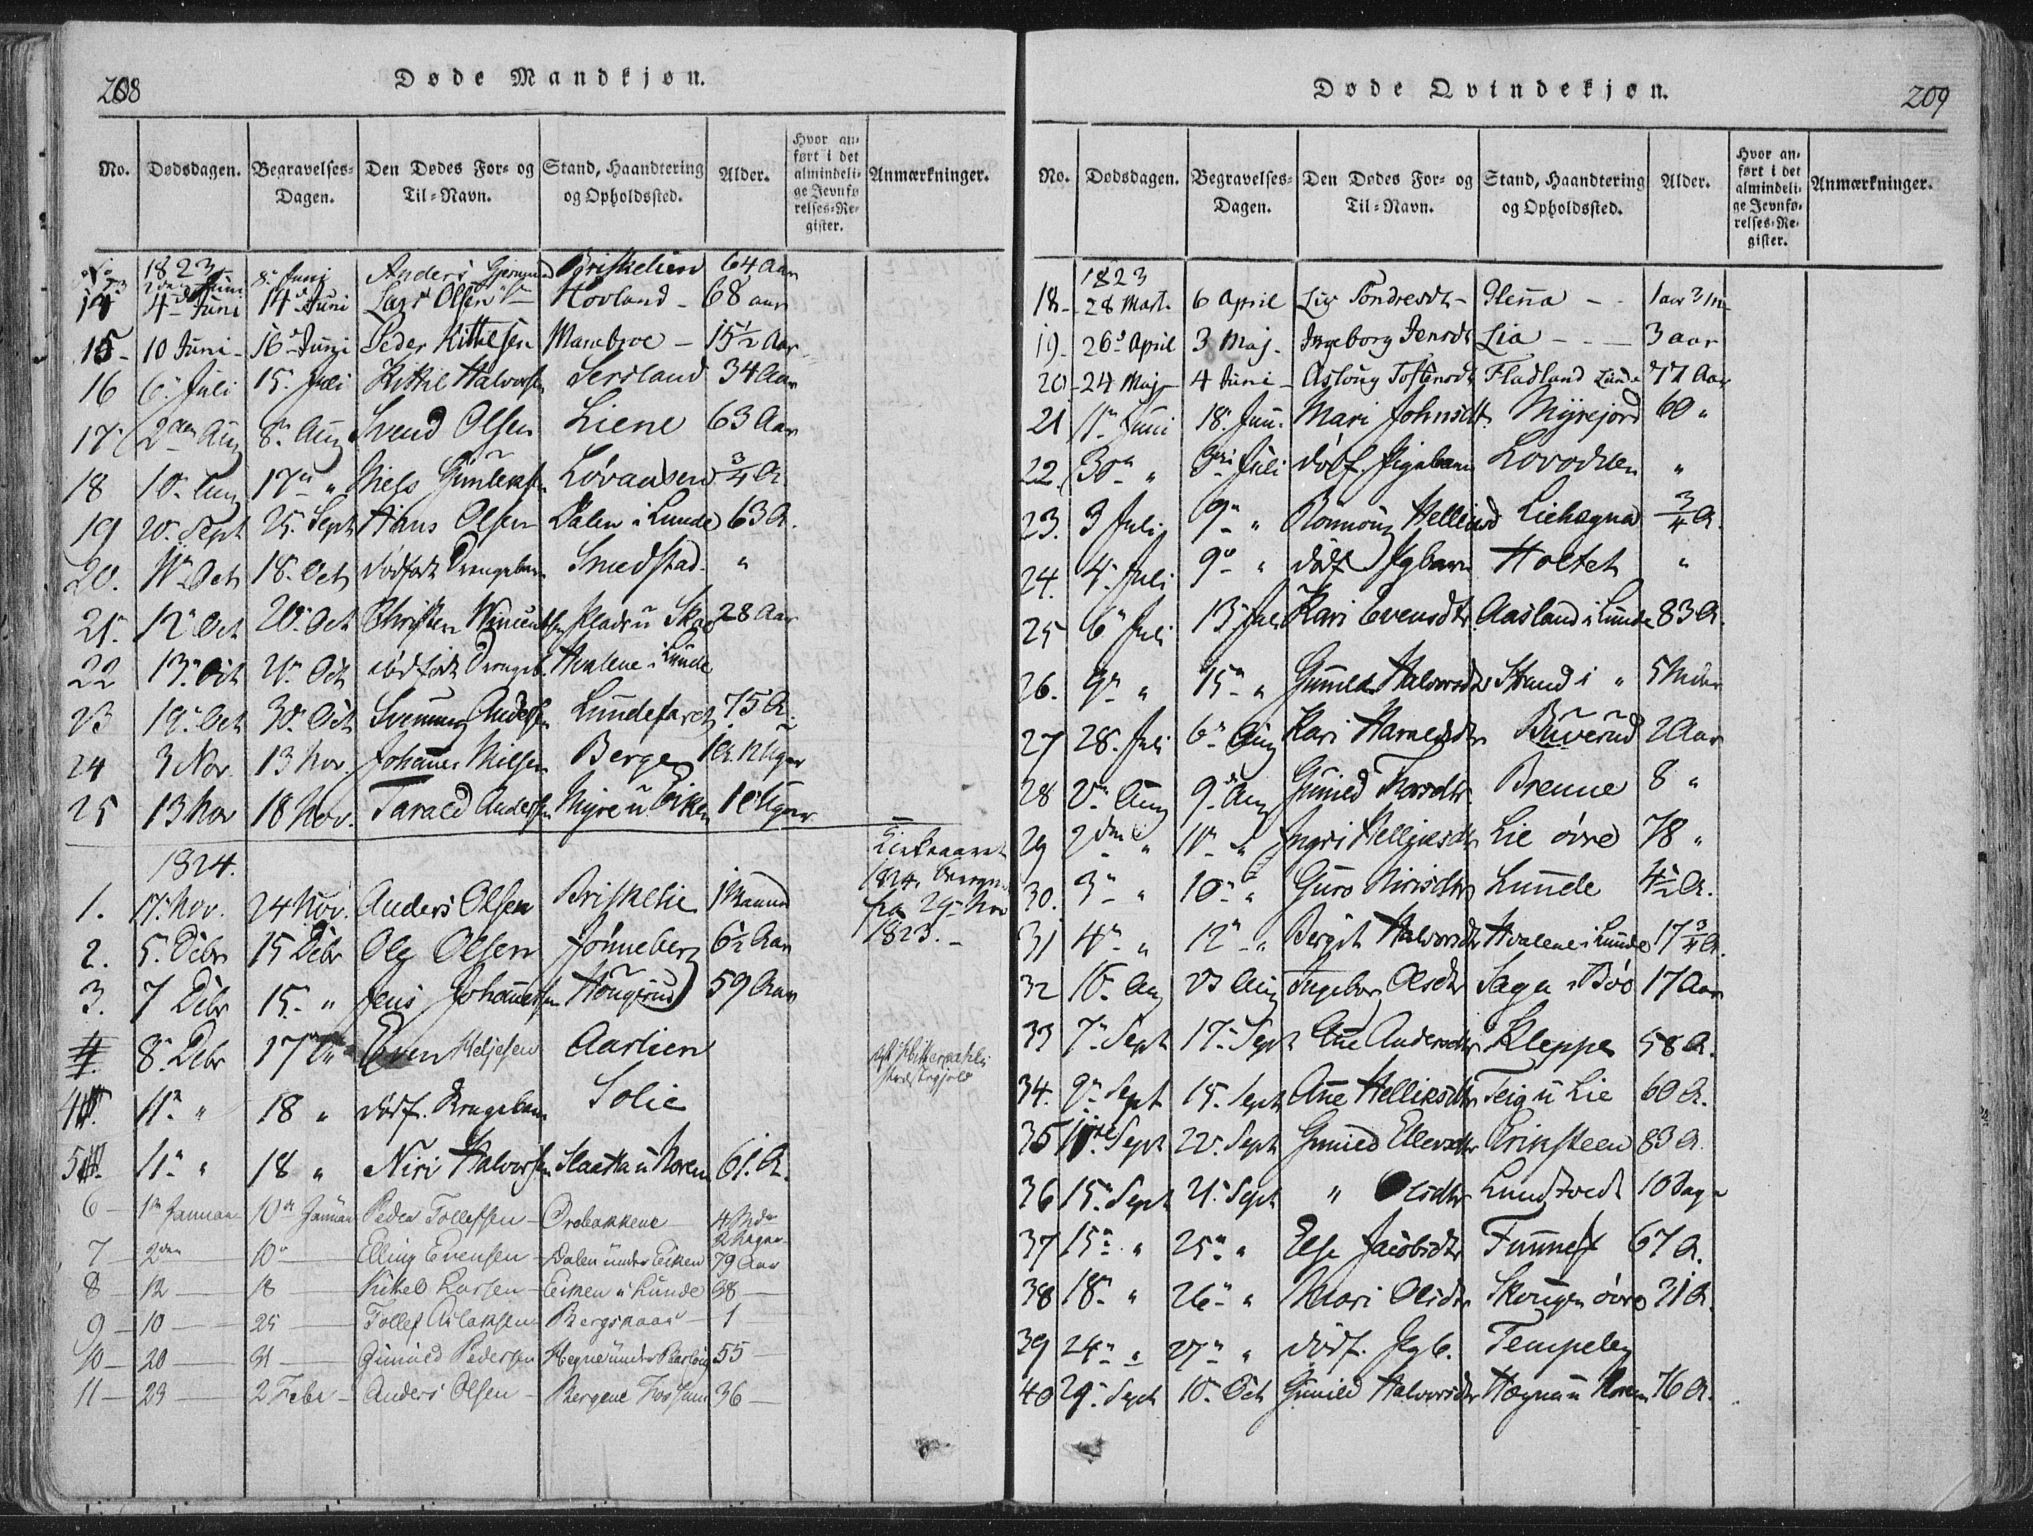 208
Døde Mandkjøn.
No. Dødsdagen. Begravelses-Dagen. Den Dødes For- og Til-Navn. Stand, Haandtering og Opholdssted. Alder. Hvor anført i det almindelige Jevnførelses-Register. Anmærkninger.
1823
8 Juni Anders Briskelien 64 Aar
14 4 Juni 14 Juni Lars Olsen Hovland - 68 aar
15 - 10 Juni - 16 Juni Peder Kittelsen Marebroe - 15½ Aar
16 6 Juli 15 Juli Kittil Halvors. Sersland 34 Aar
17 2den Aug 8 Aug Svend Olsen Liene 63 Aar
18 10 Aug 17 " Niels Løvaasen ¾ A.
19 20 Sept 25 Sept Hans Olsen Dalen i Lunde 63 A.
20. 11 Oct 18 Oct dødfødt Drengebarn Smedstad "
21 12 Oct 20 Oct Christen Plads u 28 Aar
22 13 Oct 20 Oct dødfødt Drengeb. Hvalene i Lunde
23 19 Oct 30 Oct Anders. Lundefaret 75 A.
24 3 Nov. 13 Nov. Johannes Nilsen Berge 1 A. 12 Uger
25 13 Nov 18 Nov. Tarald Anders. Myre u Eiken Uger
1824.
Kirkeaaret
1824. begynder
fra 29 Nov
1823. -
1. 17 Nov. 24 Nov. Anders Olsen Briskelie 1 Maaned
2. 5. Debr 15 Debr Ole Olsen Jønneberg 6½ Aar
3. 7 Debr 15. " Jens Johannes. Haugsrud 59 Aar
4. 8 Debr 17 Even Heljesen Aarlien
4 11 " 18 " dødf. Drengebarn Solie
5 11 " 18 " Niri Halvors. Slaatta u Norem 61. A.
6 - 1 Januar 10 Januar Peder Tollefsen - Orebakkene - 4 Mdr
2 Dager
7 - 2den - 10 - Elling Evensen - Dalen under Eiken 79 Aar
8 - 12 - 18 - Kittel Larsen - Eiken i Lunde 38 -
9 - 10 - 25 - Tollef Aslaksen Bergskaas - 1 -
10 - 20 - 31 - Gunuld Pedersen Hegne under 55 -
11 - 23 - 2 Febr - Anders Olsen - Bergene Fossum 36 -
Døde Qvindekjøn.
209
No. Dødsdagen. Begravelses-Dagen. Den Dødes For- og Til-Navn. Stand, Haandtering og Opholdssted. Alder. Hvor anført i det almindelige Jevnførelses-Register. Anmærkninger.
1823
18 - 28 Mart. 6 April Liv Tondresdt - Glenna - - 1 aar 3 M
19 - 26 April 3 Maj - Ingeborg Jensdt Lia - - - 3 aar
20 - 24 Maj - 4 Juni - Aslaug Tostensdt Fladland Lunde 77 Aar
21 11 Juni 18. Jun. Mari Johnsdt. Myrejord 60 "
22. 30 " 3 Juli dødf. Pigebarn Lovodden "
23. 3 Juli 9 " Rønnoug Helliesd Liehægna ¾ A.
24. 4 Juli 9 " dødf Pgbarn Holtet "
25 6 Juli 13 Juli Kari Evensdtr. Aasland i Lunde 83 A.
26. 9 " 15 " Gunild Halvorsdtr Strand i " 5 Mdr
27 28. Juli 6 Aug Kari Haraldsdtr Buverud 2 Aar
28 2 Aug 9 Aug Gunild Brenne 8 "
29 2den " 11 " Ingri Helljesdtr Lie øvre 78 "
30. 3 " 10 " Guro Nirisdtr Lunde 4½ A.
31 4 " 12 " Bergit Halvorsdtr Hvalene i Lunde 17 ¾ A.
32 16 Aug 23 Aug Ingebor Olsdtr Saga i Bøe 17 Aar
33 7 Sept 17 Sept Anne Andersdtr Kleppe 58 A.
34. 9 Sept 15. Sept Anne Helliksdtr Teig u Lie 60 A.
35 11 Sept 22 Sept Gunild Ellevsdtr Eriksteen 83 A.
36 15 Sept 21 Sept " Olsdtr Lundtvedt 10 Dag
37 15 " 25 " Else Jacobsdtr Funnest 67 A.
38 18 " 26 " Mari Olsdtr Skougen øvre 31 A.
39 24 " 27 " dødf. Pgb. Tempeley
40 29 Sept 10 Oct Gunild Halvorsdtr Hægna u Norem 76 A.